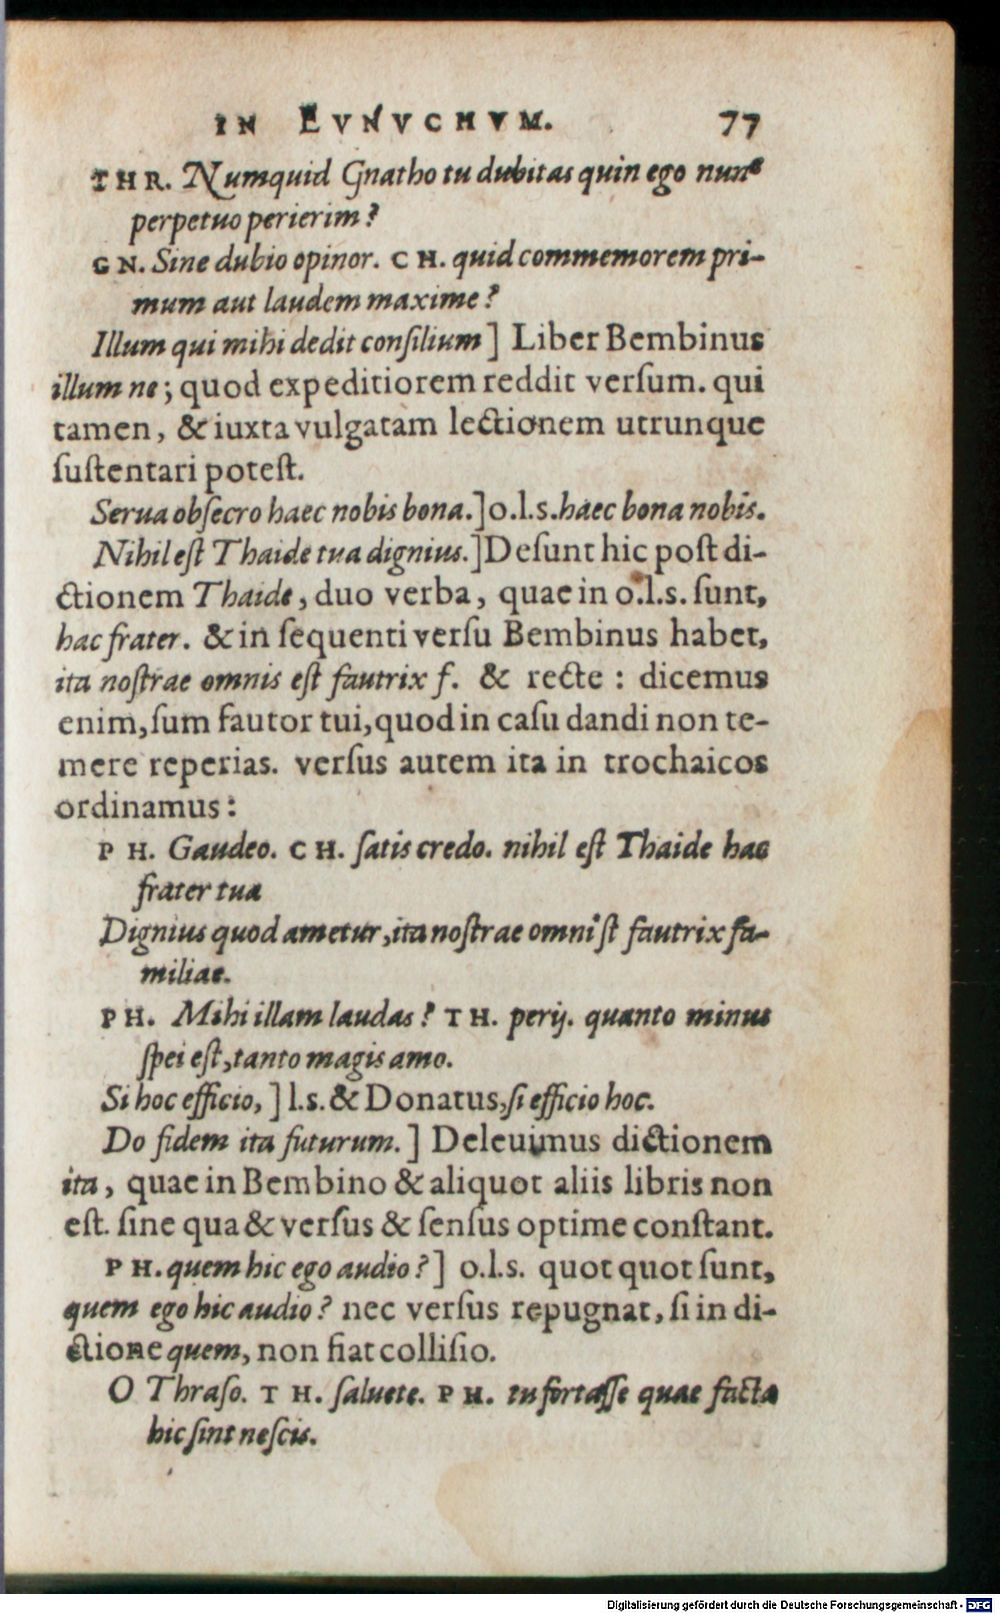 IN EVNVCHVM. 77
THR. Numquid Gnatho tu dubitas quin ego nunc
perpetuo perierim?
GN. Sine dubio opinor. CH. quid commemorem pri-
mum aut laudem maxime?
Illum qui mihi dedit consilium] Liber Bembinus
illum ne; quod expeditiorem reddit versum. qui
tamen, & iuxta vulgatam lectionem utrunque
sustentari potest.
Serua obsecro haec nobis bona.] o.l.s. haec bona nobis.
Nihil est Thaide tua dignius.] Desunt hic post di-
ctionem Thaide, duo verba, quae in o.l.s. sunt,
hac frater. & in sequenti versu Bembinus habet,
ita nostrae omnis est fautrix f. & recte: dicemus
enim, sum fautor tui, quod in casu dandi non te-
mere reperias. versus autem ita in trochaicos
ordinamus:
PH. Gaudeo. CH. satis credo. nihil est Thaide hac
frater tua
Dignius quod ametur, ita nostrae omni'st fautrix fa-
miliae.
PH. Mihi illam laudas? TH. perij. quanto minus
spei est, tanto magis amo.
Si hoc efficio,] l.s. & Donatus, si efficio hoc.
Do fidem ita futurum.] Deleuimus dictionem
ita, quae in Bembino & aliquot aliis libris non
est. sine qua & versus & sensus optime constant.
PH. quem hic ego audio?] o.l.s. quot quot sunt,
quem ego hic audio? nec versus repugnat, si in di-
ctione quem, non fiat collisio.
O Thraso. TH. saluete. PH. tu fortasse quae facta
hic sint nescis.
Digitalisierung gefördert durch die Deutsche Forschungsgemeinschaft - DFG